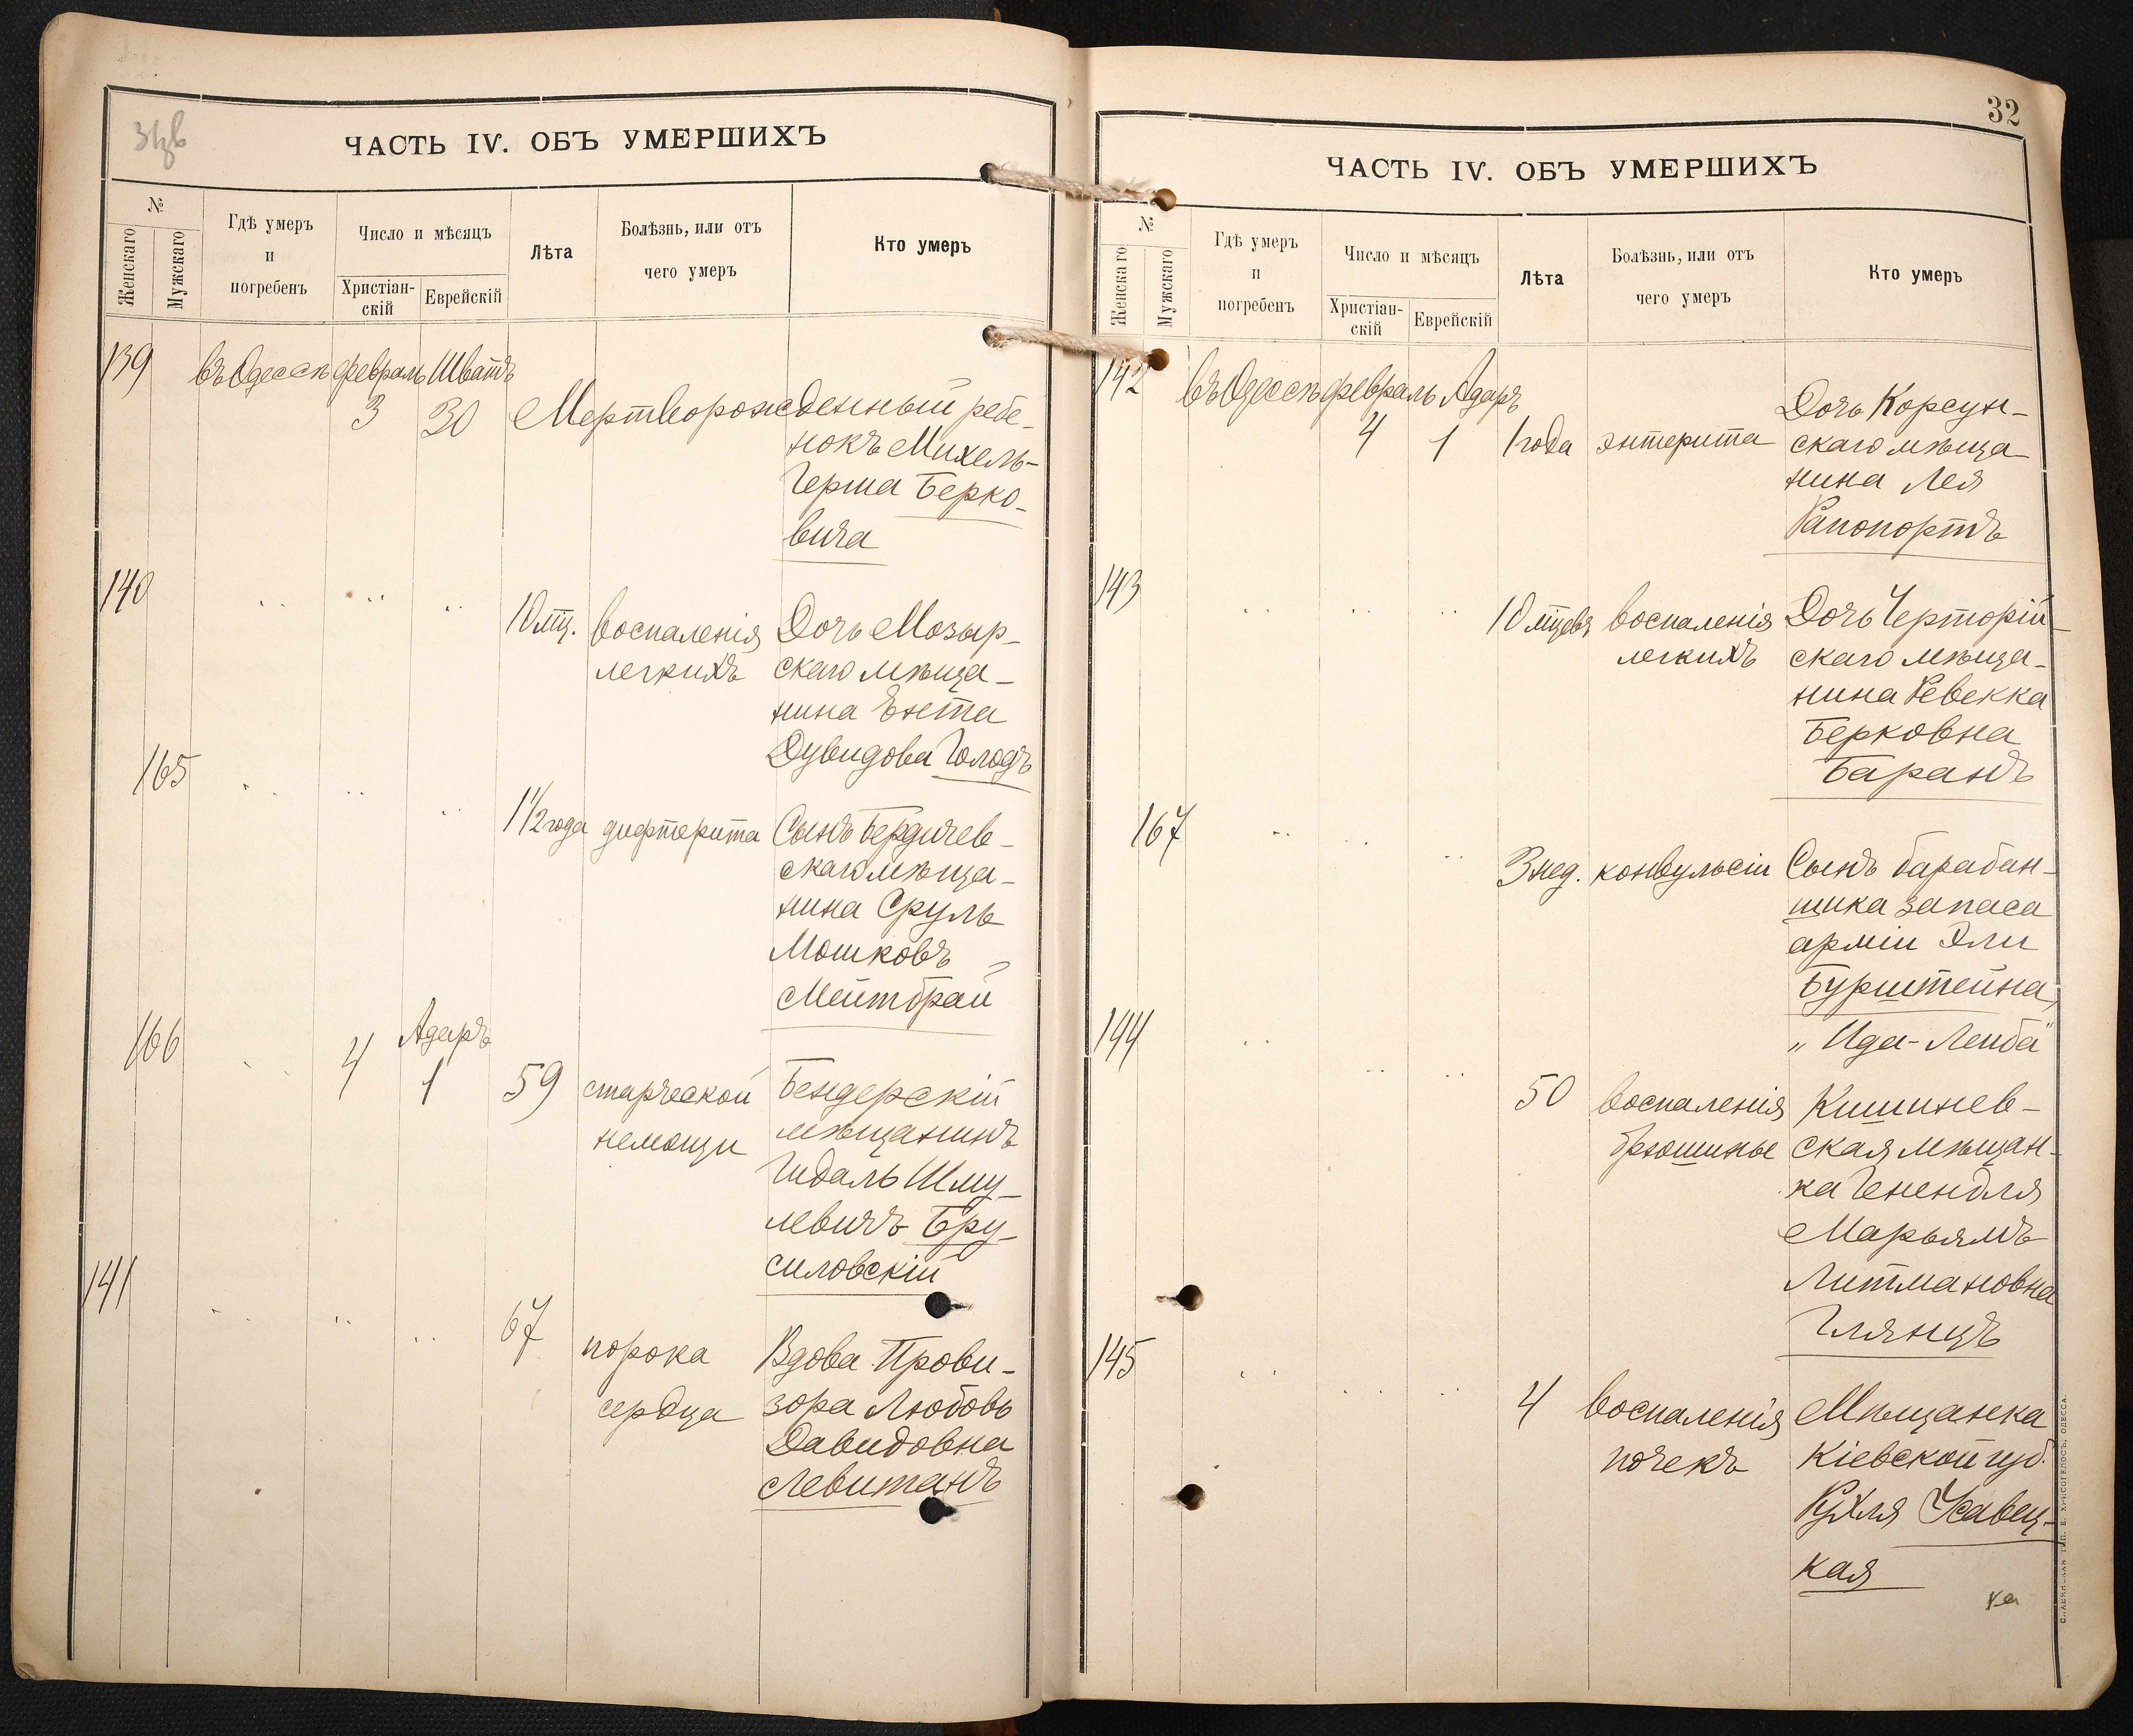 ЧАСТЬ IV. ОБЪ УМЕРШИХЪ
№
Женскаго
Мужскаго
Гдѣ умеръ
и
погребенъ
Число и мѣсяцъ
Христіан-
скій
Еврейскій
Лѣта
Болѣзнь, или отъ
чего умеръ
Кто умеръ
139 въ Одессѣ февраль Шватъ
3 30 Мертворожденный ребе-
нокъ Михель-
Герша Берко-
вича
140
10 мц. воспаленія Дочь Мозыр-
легкихъ скаго мѣща-
нина Енета
Дувидова Голодъ
165
1 1/2 года дифтерита Сынъ Бердичев-
скаго мѣща-
нина Сруль
Мошковъ
Мейтбрай
166 Адаръ
4 1 59 старческой Бендерскій
немощи мѣщанинъ
Гидаль Шму-
левичъ Бру-
силовскій
141
67 порока Вдова Прови-
сердца зора Любовь
Давидовна
Левитанъ
32
ЧАСТЬ IV. ОБЪ УМЕРШИХЪ
№
Женскаго
Мужскаго
Гдѣ умеръ
и
погребенъ
Число и мѣсяцъ
Христіан-
скій
Еврейскій
Лѣта
Болѣзнь, или отъ
чего умеръ
Кто умеръ
142 въ Одессѣ февраль Адаръ
4 1 1 года энтерита Дочь Корсун-
скаго мѣща-
нина Лея
Рапопортъ
143
10 мцевъ воспаленія Дочь Черторій-
легкихъ скаго мѣща-
нина Ревекка
Берковна
Баранъ
167
3 нед. конвульсіи Сынъ барабан-
щика запаса
арміи Эли
Бурштейна,
„Ида-Лейба"
144
50 воспаленія Кишинев-
брюшины ская мѣщан-
ка Генендля
Марьямъ
Литмановна
Глянцъ
145
4 воспаленія Мѣщанка
почекъ Кіевской губ.
Рухля Усавец-
кая
СЛАВЯНСКАЯ ТИП. Е. ХРИСОГЕЛОСЪ, ОДЕССА.